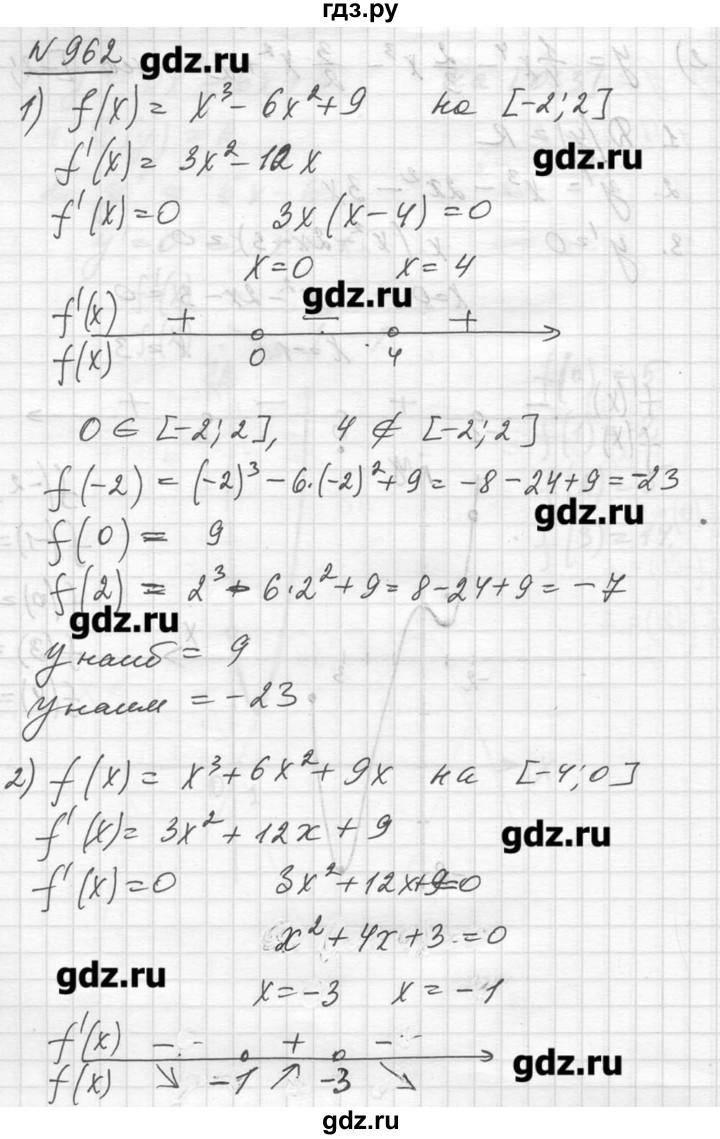 гдз.ру
№ 962 gdz.ru
1) f(x) = x³ - 6x² + 9 на [-2; 2]
f'(x) = 3x² - 12x gdz.ru
f'(x) = 0 3x(x - 4) = 0
x = 0 x = 4
gdz.ru
f'(x) + - +
f(x) 0 4
0 ∈ [-2; 2], 4 ∉ [-2; 2]
f(-2) = (-2)³ - 6·(-2)² + 9 = -8 - 24 + 9 = -23
gdz.ru
f(0) = 9
f(2) = 2³ - 6·2² + 9 = 8 - 24 + 9 = -7
gdz.ru
y наиб = 9
y наим = -23
2) f(x) = x³ + 6x² + 9x на [-4; 0]
f'(x) = 3x² + 12x + 9 gdz.ru
f'(x) = 0 3x² + 12x + 9 = 0
x² + 4x + 3 = 0
gdz.ru
x = -3 x = -1
f'(x) - + -
f(x) ↘ -1 ↗ -3 ↘ gdz.ru
gdz.ru